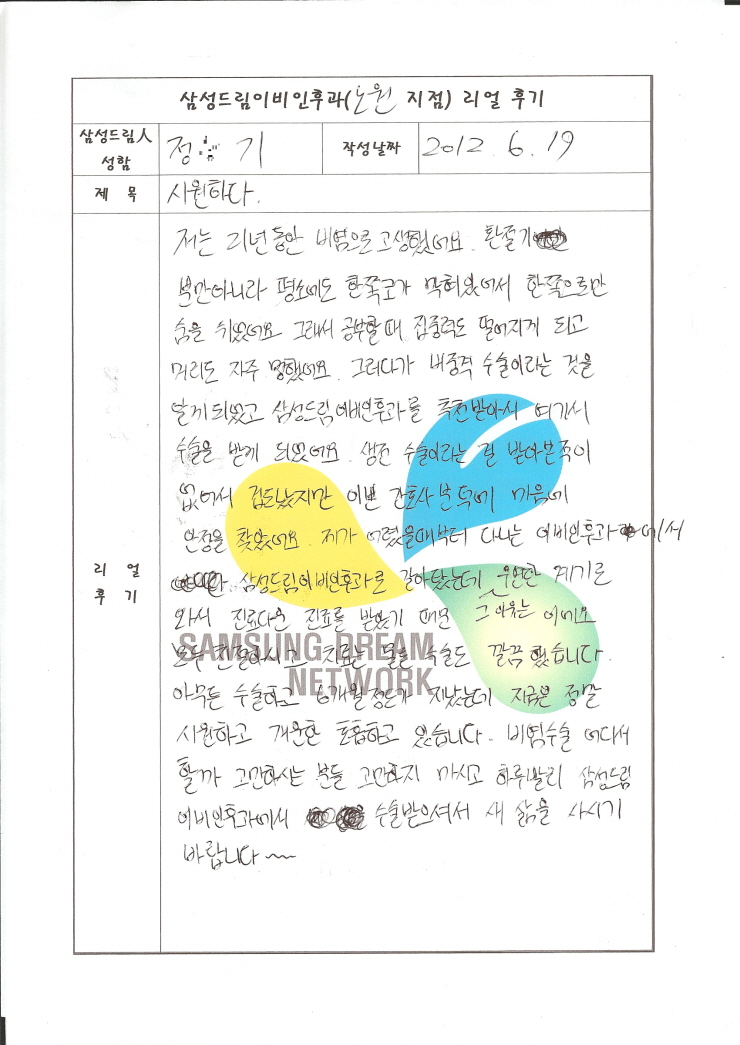 삼성드림이비인후과(노원 지점) 리얼 후기
삼성드림人
성함
정 기
작성날짜
2012. 6. 19
제 목
시원하다.
리 얼
후 기
저는 21년동안 비염으로 고생했어요. 환절기
뿐만아니라 평소에도 한쪽코가 막혀있어서 한쪽으로만
숨을 쉬었어요. 그래서 공부할때 집중력도 떨어지게 되고
머리도 자주 멍했어요. 그러다가 비중격 수술이라는 것을
알게되었고 삼성드림이비인후과를 추천받아서 여기서
수술을 받게 되었어요. 생전 수술이라는 걸 받아본적이
없어서 겁도났지만 이쁜 간호사분덕에 마음에
안정을 찾았어요. 제가 어렸을때부터 다니는 이비인후과에서
삼성드림이비인후과로 갈아탔는데 우연한 계기로
와서 진료다운 진료를 받았기 때문 그 이유는 이에요
모두 친절하시고 치료는 물론 수술도 깔끔했습니다.
SAMSUNG DREAM
NETWORK
아무튼 수술하고 6개월정도가 지났는데 지금은 정말
시원하고 개운한 호흡하고 있습니다. 비염수술 어디서
할까 고민하시는 분들 고민하지 마시고 하루빨리 삼성드림
이비인후과에서 수술받으셔서 새 삶을 사시기
바랍니다~